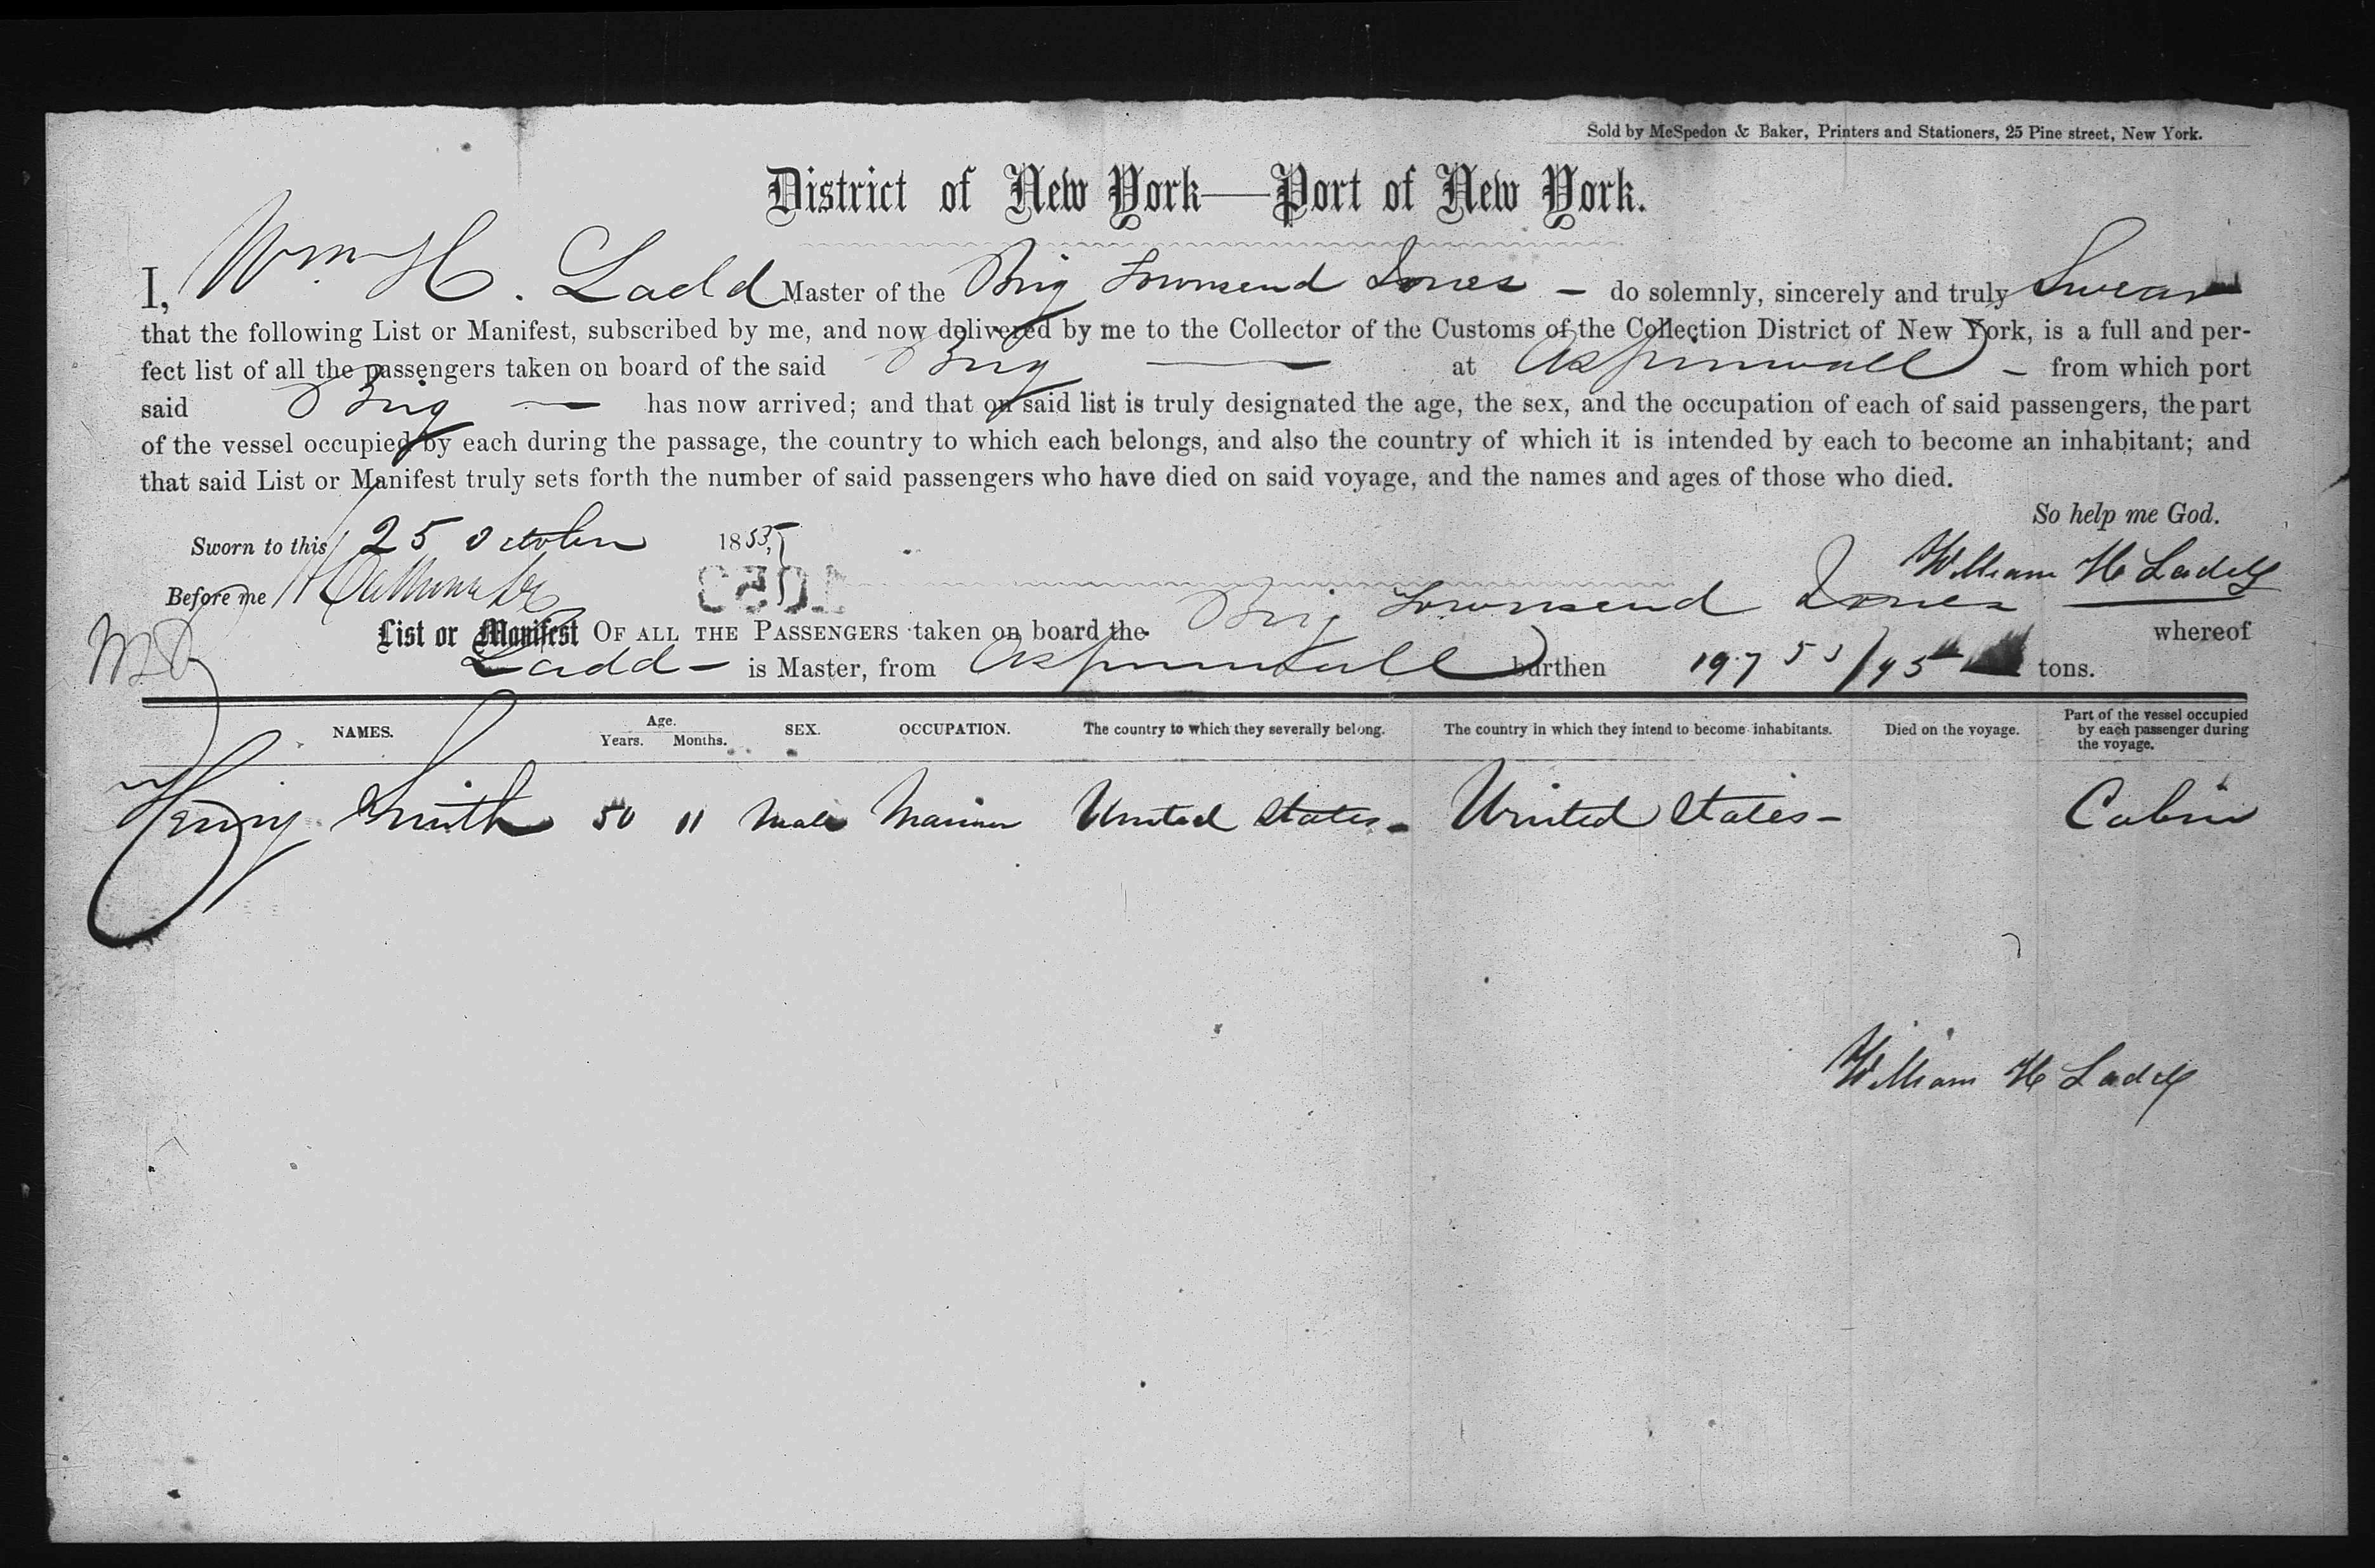 Sold by McSpedon & Baker, Printers and Stationers, 25 Pine street, New York.
District of New York—Port of New York.
I, Wm H. Ladd Master of the Brig Townsend Jones – do solemnly, sincerely and truly Swear
that the following List or Manifest, subscribed by me, and now delivered by me to the Collector of the Customs of the Collection District of New York, is a full and per-
fect list of all the passengers taken on board of the said Brig — at Aspinwall – from which port
said Brig — has now arrived; and that on said list is truly designated the age, the sex, and the occupation of each of said passengers, the part
of the vessel occupied by each during the passage, the country to which each belongs, and also the country of which it is intended by each to become an inhabitant; and
that said List or Manifest truly sets forth the number of said passengers who have died on said voyage, and the names and ages of those who died.
So help me God.
Sworn to this 25 October 1855
William H Ladd
Before me
List or Manifest OF ALL THE PASSENGERS taken on board the Brig Townsend Jones whereof
Ladd – is Master, from Aspinwall burthen 197 53/95 tons.
NAMES. Age. Years. Months. SEX. OCCUPATION. The country to which they severally belong. The country in which they intend to become inhabitants. Died on the voyage. Part of the vessel occupied by each passenger during the voyage.
Henry Smith 50 11 Male Mariner United States – United States – Cabin
William H Ladd